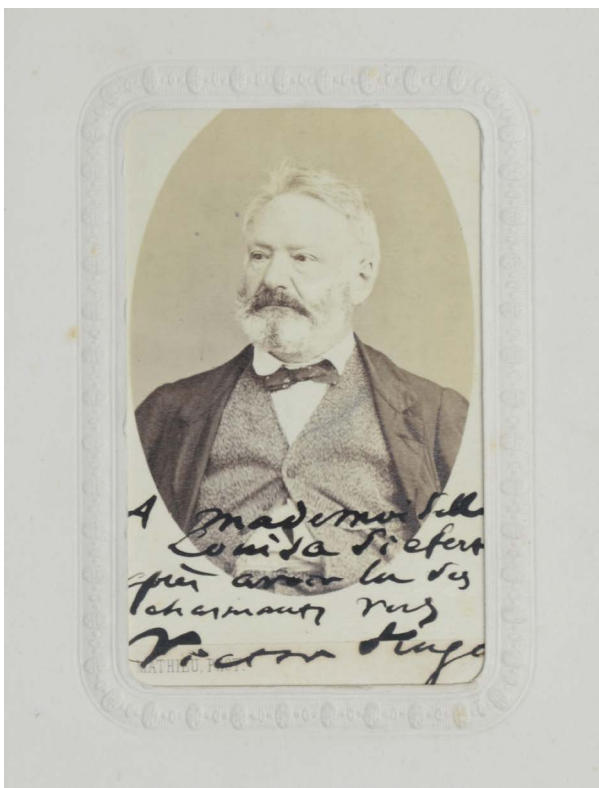 A mademoiselle
Louisa Siefert
après avoir lu ses
charmants vers
Victor Hugo
MATHIEU, PHOT.